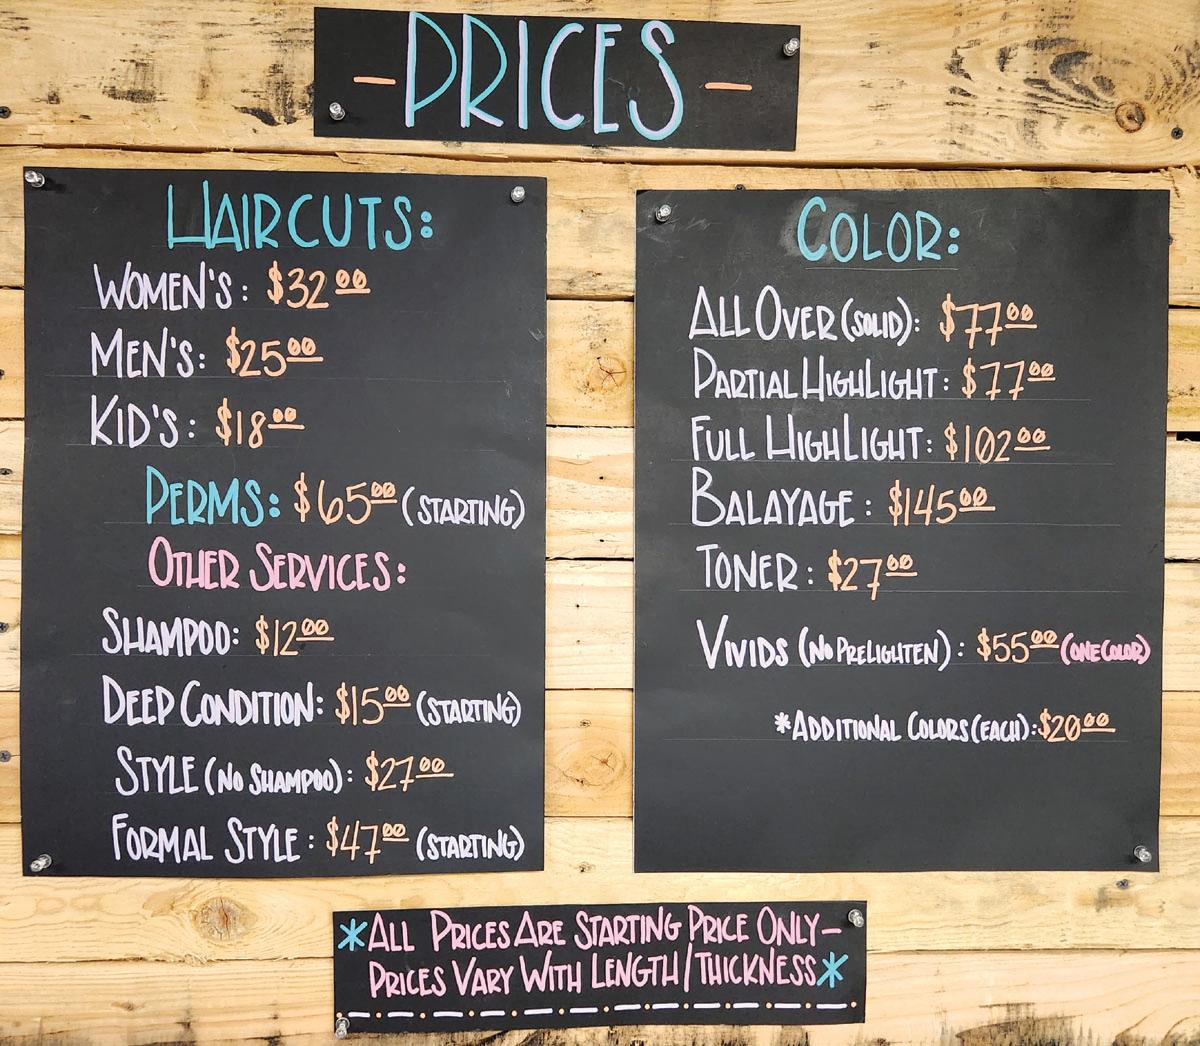 -PRICES-
HAIRCUTS:
WOMEN'S: $32.00
MEN'S: $25.00
KID'S: $18.00
PERMS: $65.00 (STARTING)
OTHER SERVICES:
SHAMPOO: $12.00
DEEP CONDITION: $15.00 (STARTING)
STYLE (NO SHAMPOO): $27.00
FORMAL STYLE: $47.00 (STARTING)
COLOR:
ALL OVER (SOLID): $77.00
PARTIAL HIGHLIGHT: $77.00
FULL HIGHLIGHT: $102.00
BALAYAGE: $145.00
TONER: $27.00
VIVIDS (NO PRELIGHTEN): $55.00 (ONE COLOR)
*ADDITIONAL COLORS (EACH): $20.00
*ALL PRICES ARE STARTING PRICE ONLY-
PRICES VARY WITH LENGTH/THICKNESS*